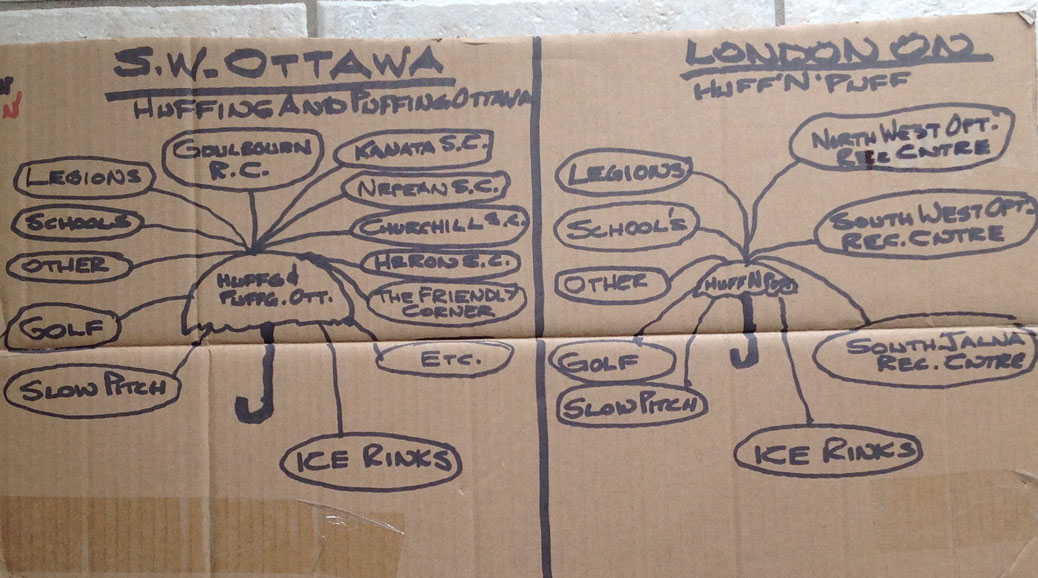 S.W. OTTAWA
HUFFING AND PUFFING OTTAWA
GOULBOURN
R.C.
KANATA S.C.
LEGIONS
NEPEAN S.C.
SCHOOLS
CHURCHILL S.C.
OTHER
HERON S.C.
HUFFG &
PUFFG. OTT.
THE FRIENDLY
CORNER
GOLF
ETC.
SLOW PITCH
ICE RINKS
LONDON ON
HUFF 'N' PUFF
NORTH WEST OPT.
REC CNTRE
LEGIONS
SCHOOL'S
SOUTH WEST OPT.
REC. CNTRE
OTHER
HUFF N PUFF
GOLF
SOUTH JALNA
REC. CNTRE
SLOW PITCH
ICE RINKS
N